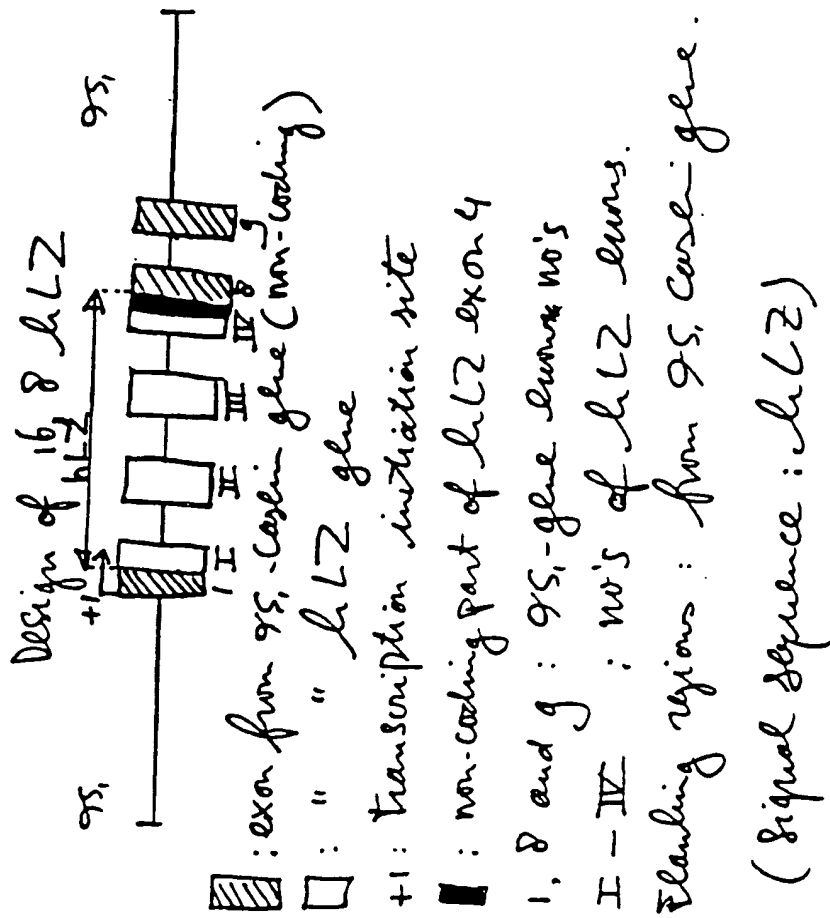 Design of 16, 8 hLZ
αS₁ αS₁
+1 hLZ
1 I II III IV 8 9
: exon from αS₁-casein gene (non-coding)
: " " hLZ gene
+1: transcription initiation site
: non-coding part of hLZ exon 4
1, 8 and 9 : αS₁-gene exons no's
I-IV : no's of hLZ exons.
Flanking regions : from αS₁ casein gene.
(Signal sequence : hLZ)